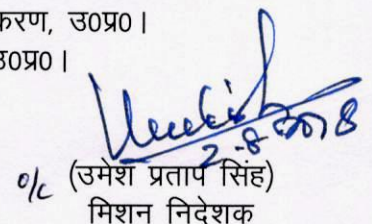 करण, उ0प्र0।
उ0प्र0।
2-8-2018
o/c (उमेश प्रताप सिंह)
मिशन निदेशक